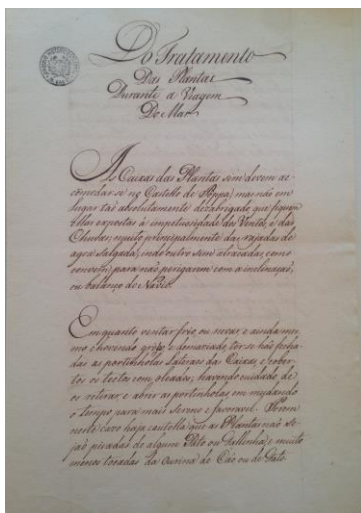 Do Tratamento
Das Plantas
Durante a Viagem
Do Mar
As Caixas das Plantas sim devem ac-
comodar-se no Castello de Poppa, mas não em
lugar tão absolutamente desabrigado que fiquem
ellas expostas à impetuosidade dos Ventos, e das
Chuvas, muito principalmente das rajadas de
agoa salgada, indo outro sim abracadas, como
convem, para não perigarem com a inclinação,
ou balanço do Navio.
Em quanto ventar frio ou nevar, e ainda mes-
mo chovendo grosso, e demaziado, ter-se hão fecha-
das as portinholas lateraes das Caixas, e cober-
tos os tectos com oleados; havendo cuidado de
os retirar e abrir as portinholas em mudando
o tempo para mais sereno e favoravel. Porem
neste cazo haja cautella que as Plantas não se-
jaõ picadas de algum Pato ou Gallinha, e muito
menos tocadas da ourina de Cão ou de Gato.